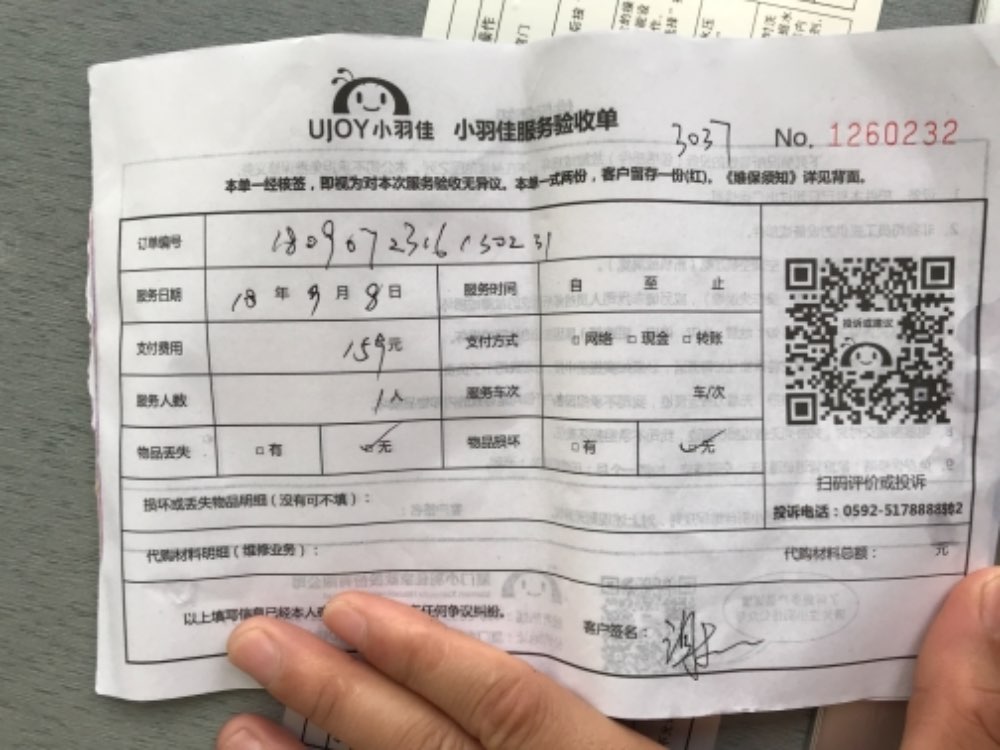 UJOY小羽佳 小羽佳服务验收单
3037 No. 1260232
本单一经核签，即视为对本次服务验收无异议。本单一式两份，客户留存一份(红)。《维保须知》详见背面。
订单编号
服务日期 18 年 9 月 8 日 服务时间 自 至 止
支付费用 159元 支付方式 □网络 □现金 □转账
投诉或建议
服务人数 1人 服务车次 车/次
物品丢失 □有 ☑无 物品损坏 □有 ☑无
扫码评价或投诉
损坏或丢失物品明细（没有可不填）：
投诉电话：0592-5178888
代购材料明细（维修业务）： 代购材料总额： 元
以上填写信息已经本人 任何争议纠纷。
客户签名：谢